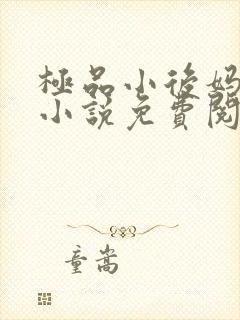 極品小後媽
小說免費閱
童嵩